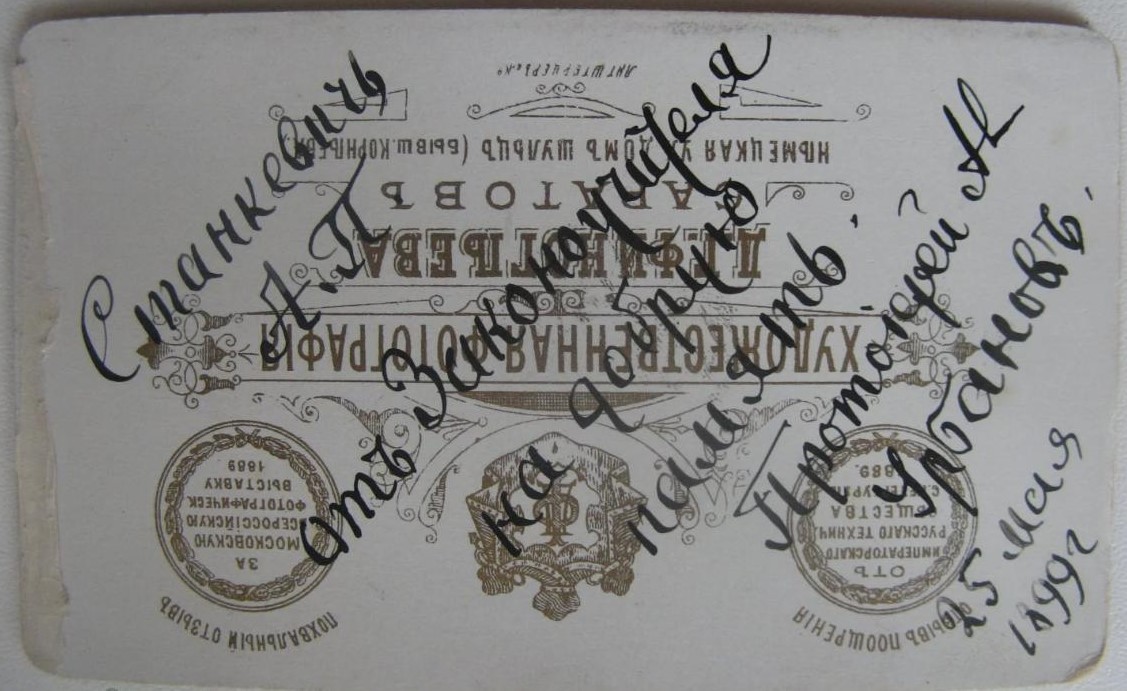 Станкевичъ
А. П
отъ Законоучителя
на добрую
память.
Протоіерей Ал
Урбановъ.
25 Мая
1899 г
ПОХВАЛЬНЫЙ ОТЗЫВЪ
ЗА
МОСКОВСКУЮ
ВСЕРОССІЙСКУЮ
ФОТОГРАФИЧЕСК
ВЫСТАВКУ
1889
ОТЗЫВЪ ПООЩРЕНІЯ
ОТЪ
ИМПЕРАТОРСКАГО
РУССКАГО ТЕХНИЧ.
ОБЩЕСТВА
1889.
ХУДОЖЕСТВЕННАЯ ФОТОГРАФІЯ
САРАТОВЪ
НѢМЕЦКАЯ УЛ. ДОМЪ ШУЛЬЦЪ (БЫВШ. КОРНѢЕВА)